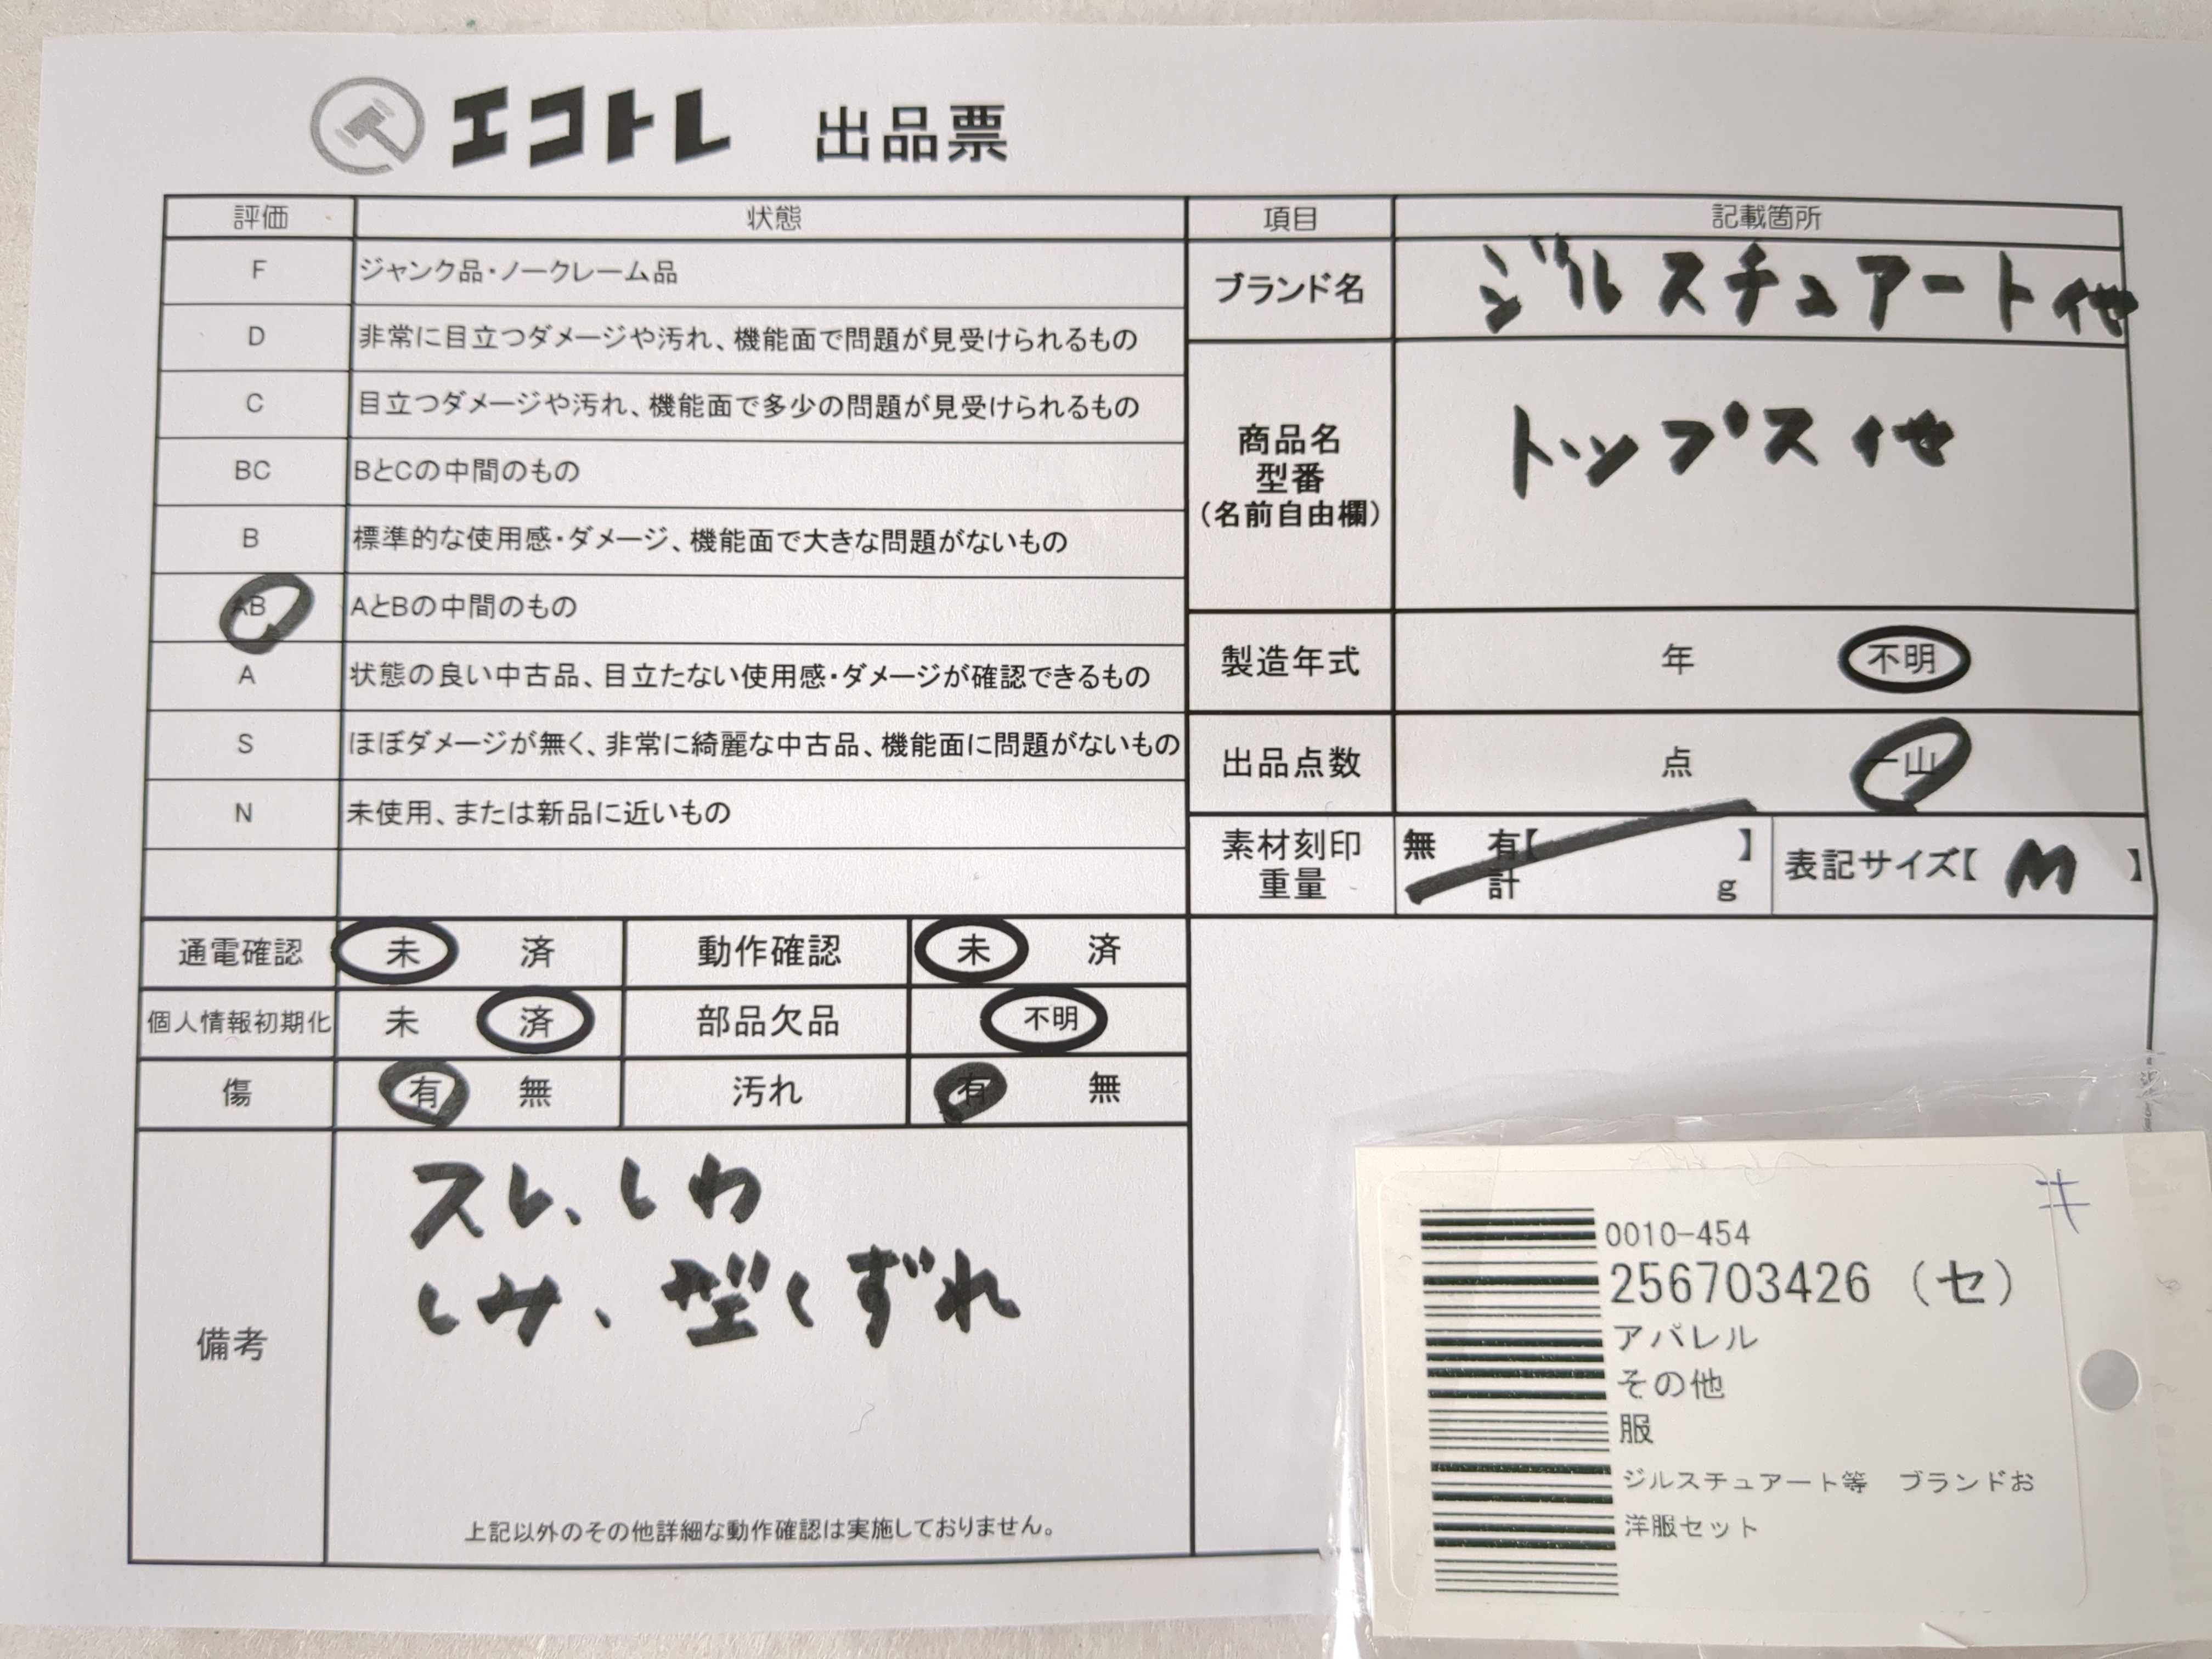 エコトレ 出品票
評価 状態
F ジャンク品・ノークレーム品
D 非常に目立つダメージや汚れ、機能面で問題が見受けられるもの
C 目立つダメージや汚れ、機能面で多少の問題が見受けられるもの
BC BとCの中間のもの
B 標準的な使用感・ダメージ、機能面で大きな問題がないもの
AB AとBの中間のもの
A 状態の良い中古品、目立たない使用感・ダメージが確認できるもの
S ほぼダメージが無く、非常に綺麗な中古品、機能面に問題がないもの
N 未使用、または新品に近いもの
項目 記載箇所
ブランド名 ジルスチュアート他
商品名
型番
(名前自由欄)
トップス他
製造年式 年 不明
出品点数 点 一山
素材刻印 無 有【 】
重量 計 g
表記サイズ【 M 】
通電確認 未 済 動作確認 未 済
個人情報初期化 未 済 部品欠品 不明
傷 有 無 汚れ 有 無
備考
スレ、しわ
しみ、型くずれ
上記以外のその他詳細な動作確認は実施しておりません。
キ
0010-454
256703426 (セ)
アパレル
その他
服
ジルスチュアート等 ブランドお
洋服セット